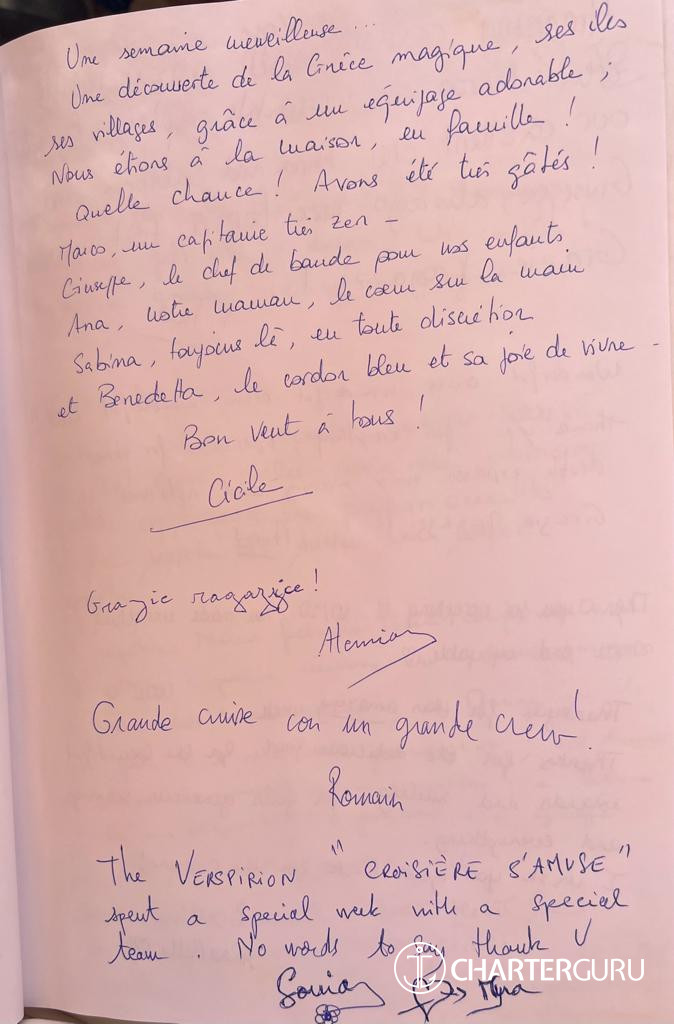 Une semaine merveilleuse...
Une découverte de la Grèce magique, ses iles
ses villages, grâce à un équipage adorable ;
Nous étions à la maison, en famille !
Quelle chance ! Avons été très gâtés !
Marco, un capitaine très zen -
Giuseppe, le chef de bande pour nos enfants.
Ana, notre maman, le cœur sur la main
Sabina, toujours là, en toute discrétion
et Benedetta, le cordon bleu et sa joie de vivre -
Bon vent à tous !
Cécile
Grazie
Grande cruise con un grande crew !
Romain
The VERSPIRION "CROISIÈRE S'AMUSE"
spent a special week with a special
team. No words to say thank U
Sonia Myra
CHARTERGURU